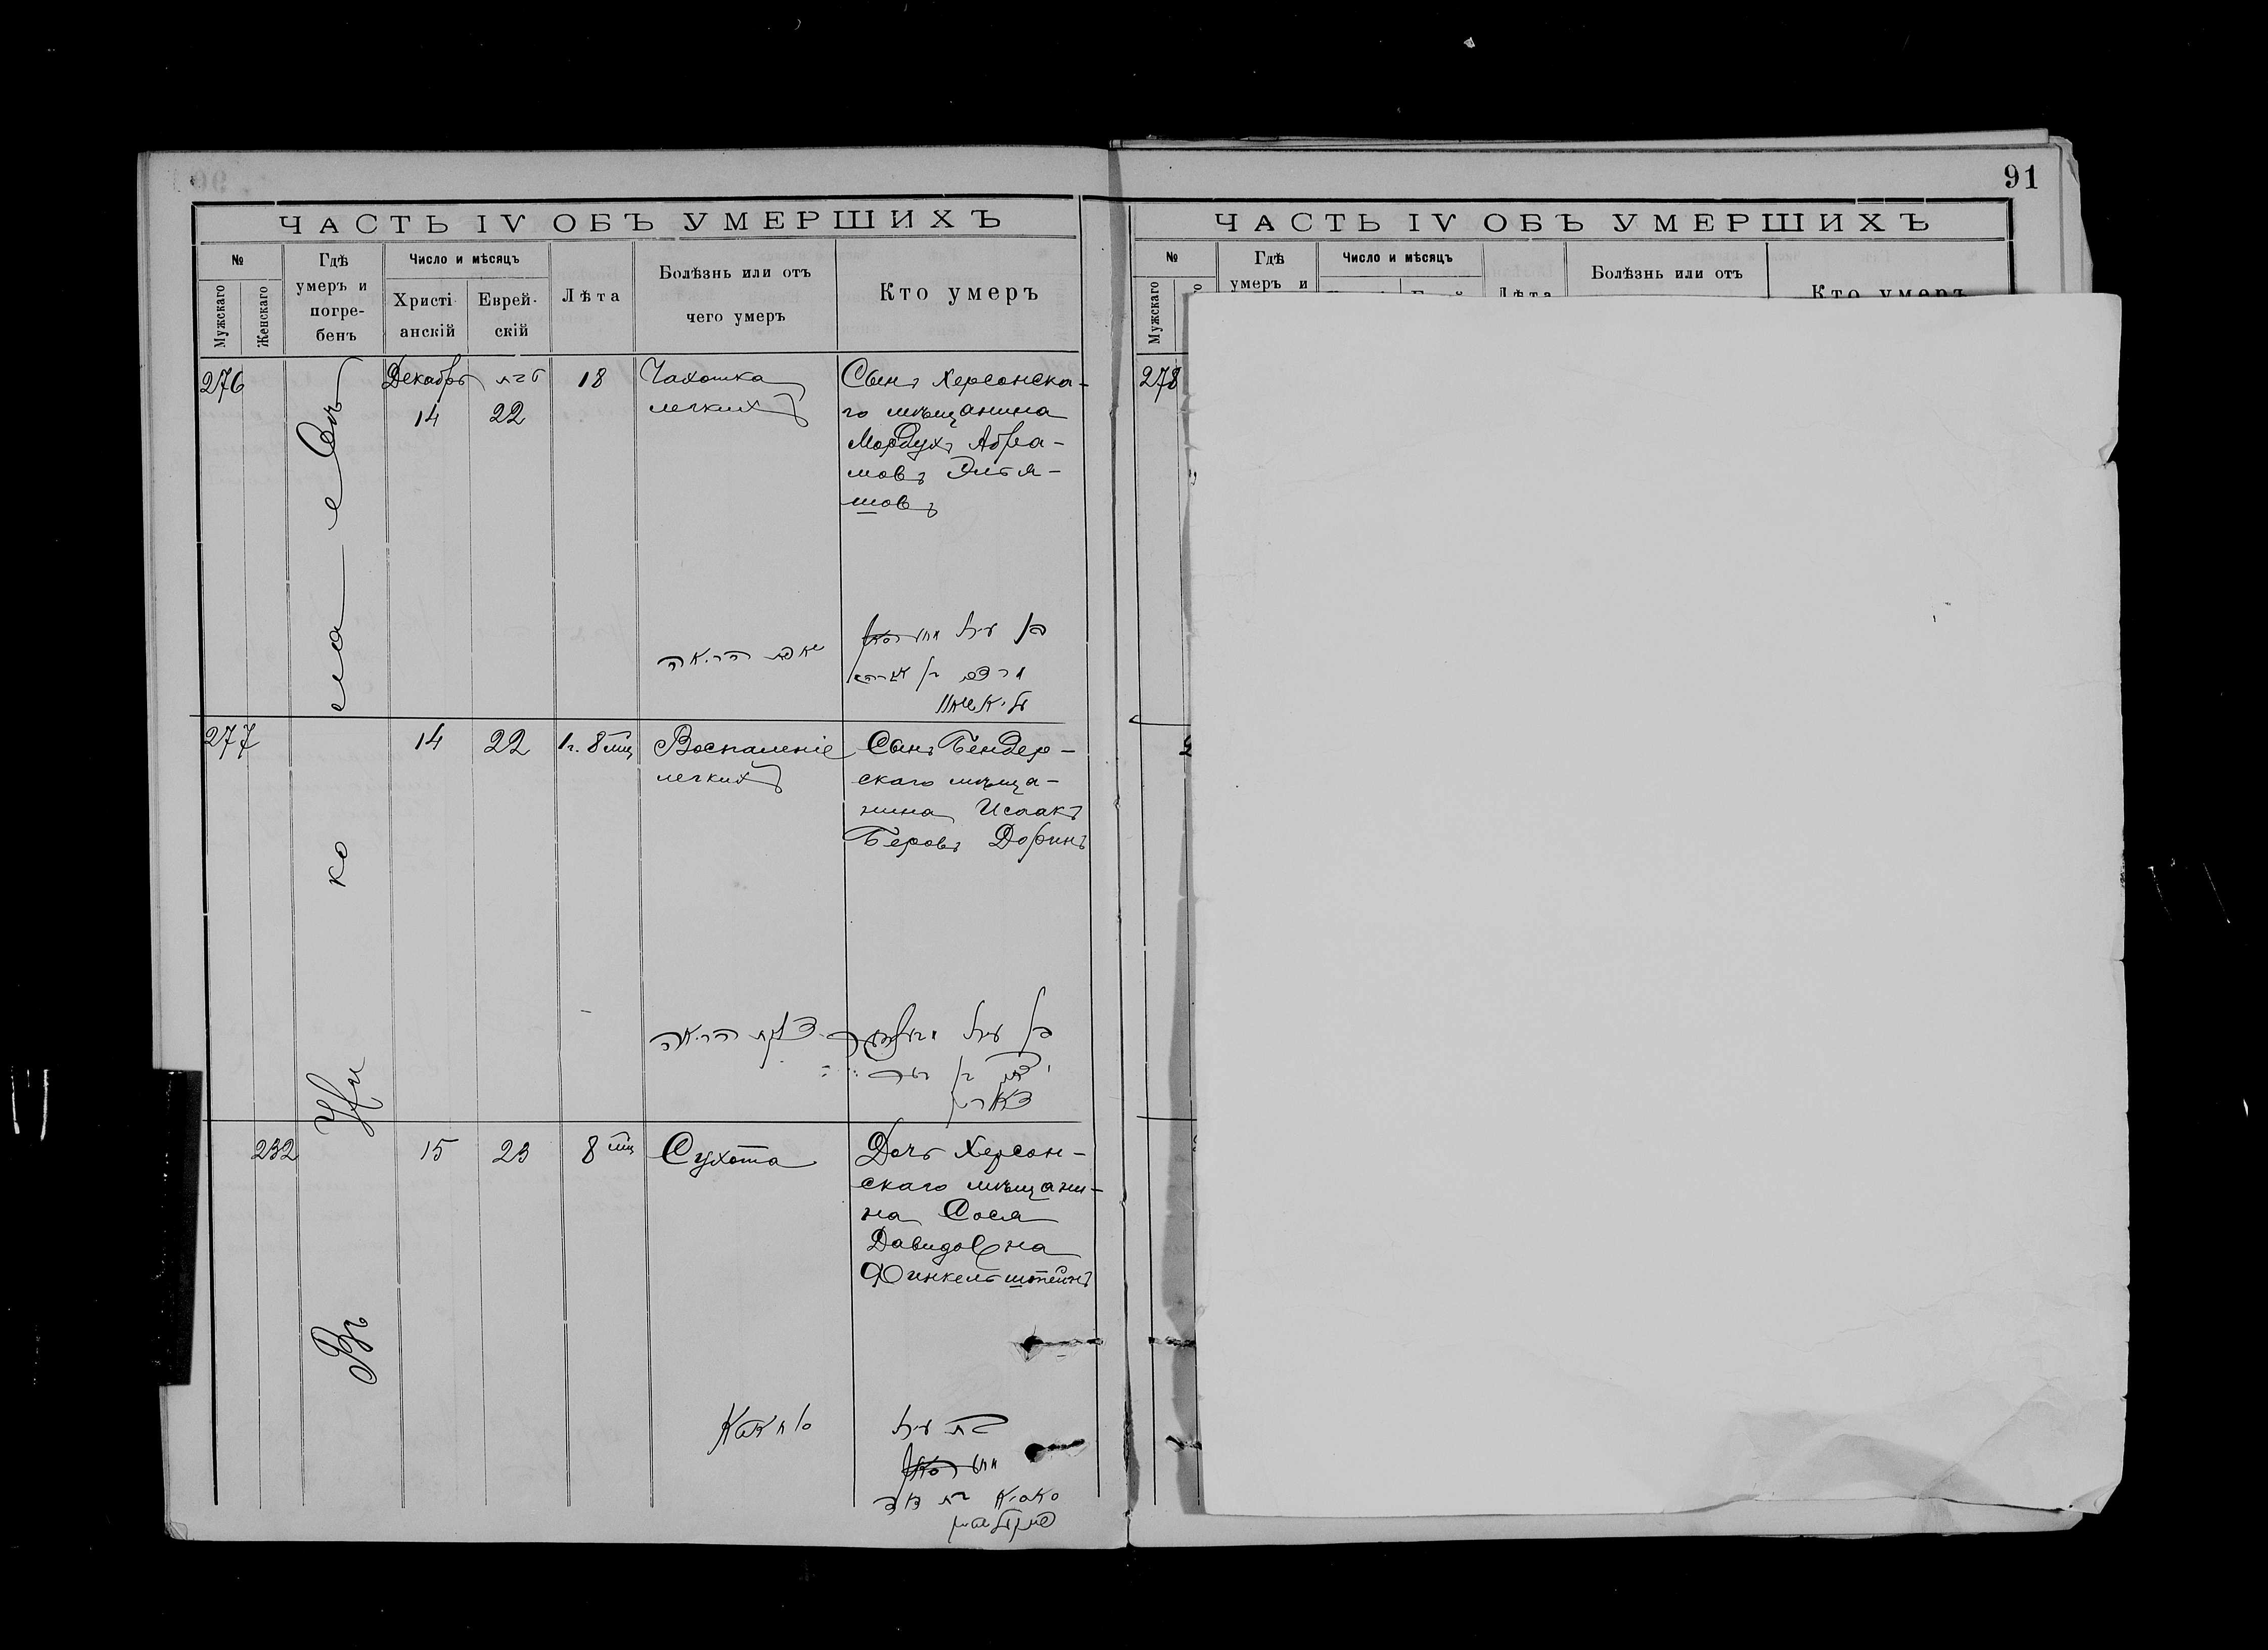 91
ЧАСТЬ IV ОБЪ УМЕРШИХЪ
№
Мужскаго
Женскаго
Гдѣ
умеръ и
погре-
бенъ
Число и мѣсяцъ
Христі
анскій
Еврей-
скій
Лѣта
Болѣзнь или отъ
чего умеръ
Кто умеръ
276
Декабрь
14
טבת
22
18
Чахотка
легкихъ
Сынъ Херсонска-
го мѣщанина
Мордухъ Абра-
мовъ Элья-
шовъ
הריאה
בן עיר
277
14
22
1 г. 8 мц
Воспаленіе
легкихъ
Сынъ Бендер-
скаго мѣща-
нина Исаакъ
Беровъ Доринъ
דלקת הריאה
בן עיר
232
15
23
8 мц
Сухота
Дочь Херсон-
скаго мѣщани-
на Сося
Давидовна
Финкельштейнъ
בת עיר
Въ
Ни
ко
ла
е
вѣ
ЧАСТЬ IV ОБЪ УМЕРШИХЪ
№
Мужскаго
Гдѣ
умеръ и
Число и мѣсяцъ
Лѣта
Болѣзнь или отъ
Кто умеръ
278